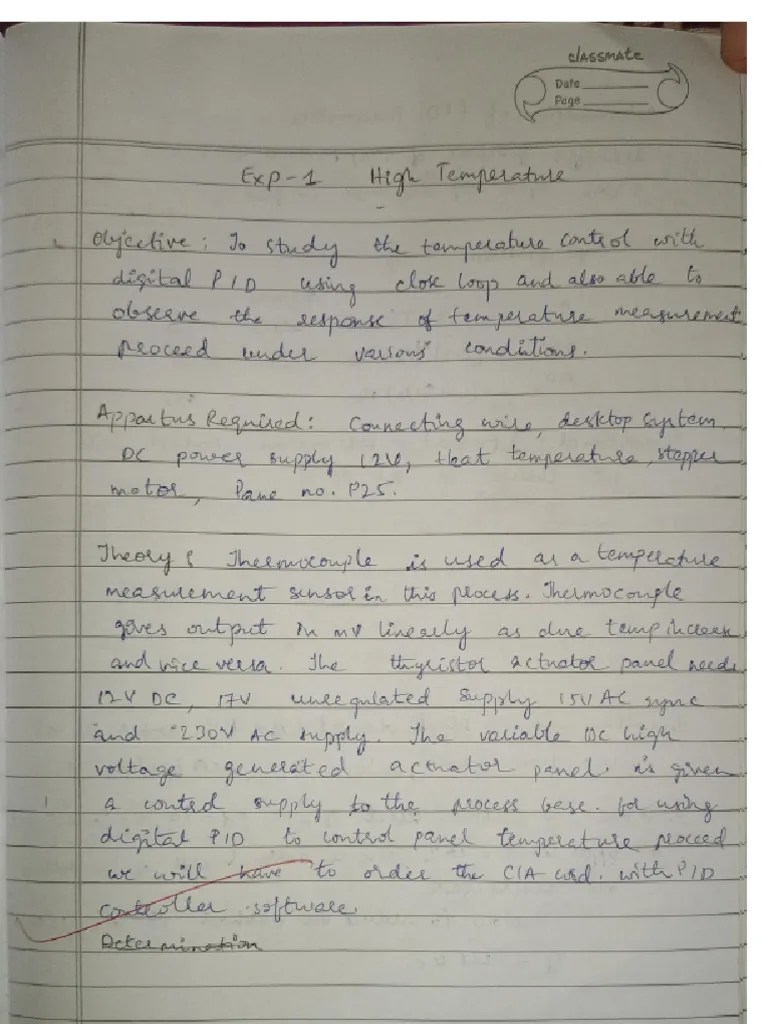 classmate
Date
Page
Exp-1 High Temperature
Objective: To study the temperature control with
digital PID using close loop and also able to
observe the response of temperature measurement
proceed under various conditions.
Appartus Required: Connecting wire, desktop system
DC power supply 12V, Heat temperature, stepper
motor, Pane no. P25.
Theory: Thermocouple is used as a temperature
measurement sensor in this process. Thermocouple
gives output in mv linearly as due temp increase
and vice versa. The thyristor actuator panel needs
12V DC, 17V unregulated supply 15V AC sync
and 230V AC supply. The variable DC high
voltage generated actuator panel. is given
a control supply to the process base. for using
digital PID to control panel temperature proceed
we will have to order the CIA card. with PID
controller software
Determination